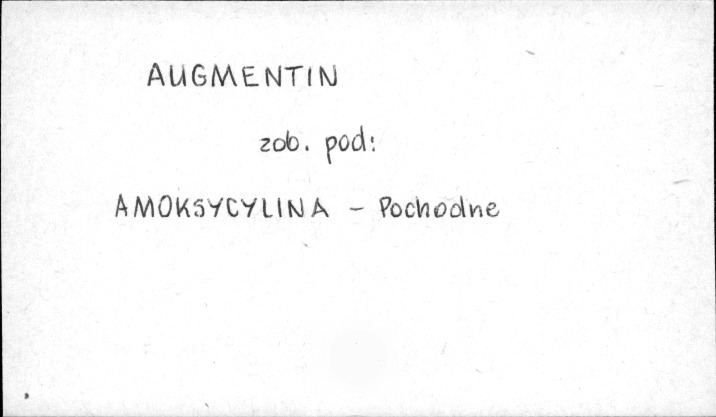 AUGMENTIN
zob. pod:
AMOKSYCYLINA - Pochodne